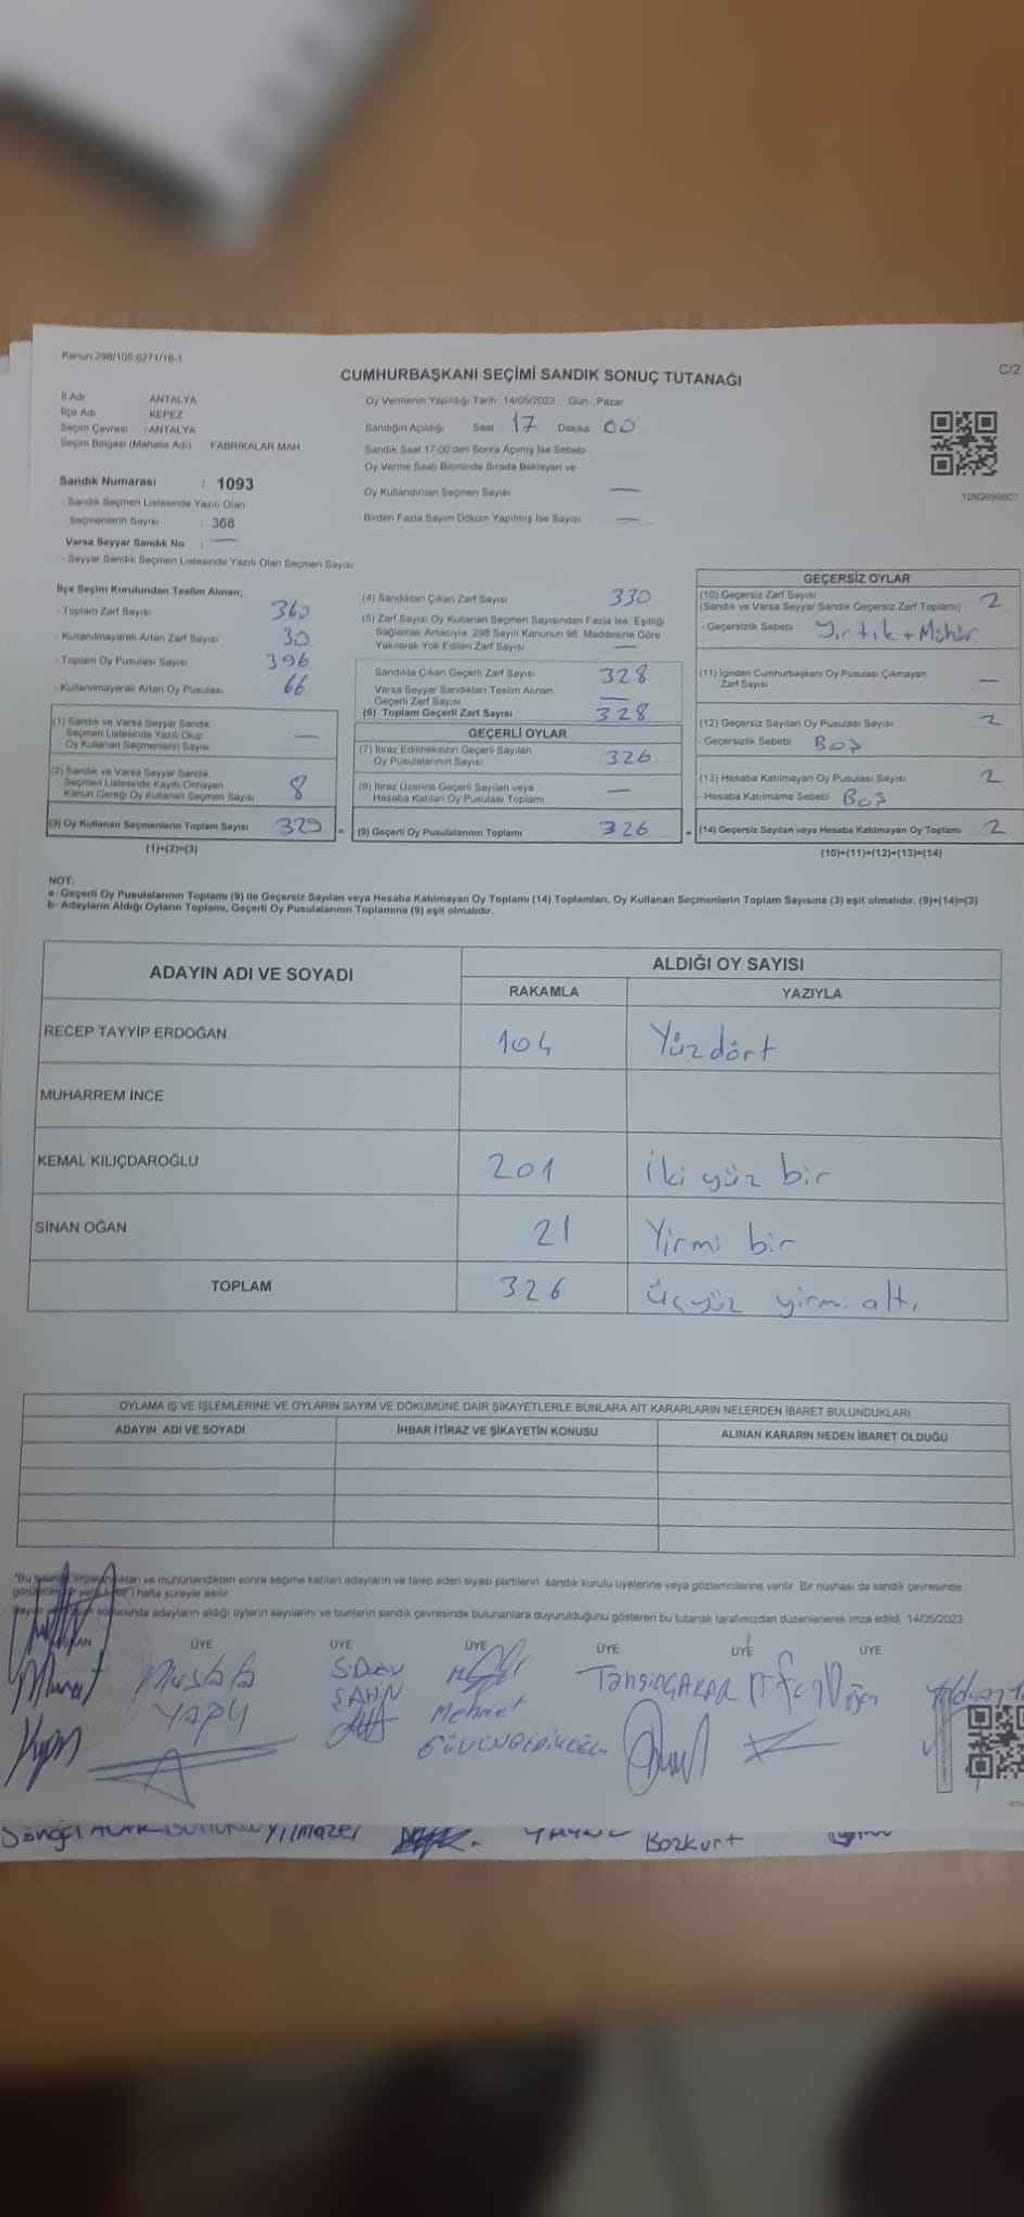 Kanun:298/105;6271/16-1
C/2
CUMHURBAŞKANI SEÇİMİ SANDIK SONUÇ TUTANAĞI
İl Adı : ANTALYA
İlçe Adı : KEPEZ
Seçim Çevresi : ANTALYA
Seçim Bölgesi (Mahalle Adı) : FABRİKALAR MAH
Sandık Numarası : 1093
- Sandık Seçmen Listesinde Yazılı Olan
Seçmenlerin Sayısı : 368
Varsa Seyyar Sandık No : —
- Seyyar Sandık Seçmen Listesinde Yazılı Olan Seçmen Sayısı
Oy Vermenin Yapıldığı Tarih : 14/05/2023 Gün : Pazar
Sandığın Açıldığı Saat 17 Dakika 00
Sandık Saat 17:00'den Sonra Açılmış İse Sebebi
Oy Verme Saati Bitiminde Sırada Bekleyen ve
Oy Kullandırılan Seçmen Sayısı —
Birden Fazla Sayım Döküm Yapılmış İse Sayısı —
İlçe Seçim Kurulundan Teslim Alınan;
- Toplam Zarf Sayısı 360
- Kullanılmayarak Artan Zarf Sayısı 30
- Toplam Oy Pusulası Sayısı 396
- Kullanılmayarak Artan Oy Pusulası 66
(1) Sandık ve Varsa Seyyar Sandık
Seçmen Listesinde Yazılı Olup
Oy Kullanan Seçmenlerin Sayısı —
(2) Sandık ve Varsa Seyyar Sandık
Seçmen Listesinde Kayıtlı Olmayan
Kanun Gereği Oy Kullanan Seçmen Sayısı 8
(3) Oy Kullanan Seçmenlerin Toplam Sayısı 329 =
(1)+(2)=(3)
(4) Sandıktan Çıkan Zarf Sayısı 330
(5) Zarf Sayısı Oy Kullanan Seçmen Sayısından Fazla İse, Eşitliği
Sağlamak Amacıyla, 298 Sayılı Kanunun 98. Maddesine Göre
Yakılarak Yok Edilen Zarf Sayısı —
Sandıkta Çıkan Geçerli Zarf Sayısı 328
Varsa Seyyar Sandıktan Teslim Alınan
Geçerli Zarf Sayısı —
(6) Toplam Geçerli Zarf Sayısı 328
GEÇERLİ OYLAR
(7) İtiraz Edilmeksizin Geçerli Sayılan
Oy Pusulalarının Sayısı 326
(8) İtiraz Üzerine Geçerli Sayılan veya
Hesaba Katılan Oy Pusulası Toplamı —
(9) Geçerli Oy Pusulalarının Toplamı 326
GEÇERSİZ OYLAR
(10) Geçersiz Zarf Sayısı 2
(Sandık ve Varsa Seyyar Sandık Geçersiz Zarf Toplamı)
- Geçersizlik Sebebi Yırtık + Mühür
(11) İçinden Cumhurbaşkanı Oy Pusulası Çıkmayan
Zarf Sayısı —
(12) Geçersiz Sayılan Oy Pusulası Sayısı 2
- Geçersizlik Sebebi BOŞ
(13) Hesaba Katılmayan Oy Pusulası Sayısı 2
- Hesaba Katılmama Sebebi BOŞ
(14) Geçersiz Sayılan veya Hesaba Katılmayan Oy Toplamı 2
(10)+(11)+(12)+(13)=(14)
NOT:
a- Geçerli Oy Pusulalarının Toplamı (9) ile Geçersiz Sayılan veya Hesaba Katılmayan Oy Toplamı (14) Toplamları, Oy Kullanan Seçmenlerin Toplam Sayısına (3) eşit olmalıdır. (9)+(14)=(3)
b- Adayların Aldığı Oyların Toplamı, Geçerli Oy Pusulalarının Toplamına (9) eşit olmalıdır.
ADAYIN ADI VE SOYADI
ALDIĞI OY SAYISI
RAKAMLA YAZIYLA
RECEP TAYYİP ERDOĞAN 104 Yüzdört
MUHARREM İNCE
KEMAL KILIÇDAROĞLU 201 İki yüz bir
SİNAN OĞAN 21 Yirmi bir
TOPLAM 326 Üçyüz yirmi altı
OYLAMA İŞ VE İŞLEMLERİNE VE OYLARIN SAYIM VE DÖKÜMÜNE DAİR ŞİKAYETLERLE BUNLARA AİT KARARLARIN NELERDEN İBARET BULUNDUKLARI
ADAYIN ADI VE SOYADI İHBAR İTİRAZ VE ŞİKAYETİN KONUSU ALINAN KARARIN NEDEN İBARET OLDUĞU
ve mühürlendikten sonra seçime katılan adayların ve talep eden siyasi partilerin sandık kurulu üyelerine veya gözlemcilerine verilir. Bir nüshası da sandık çevresinde
1 hafta süreyle asılır.
adayların aldığı oyların sayılarını ve bunların sandık çevresinde bulunanlara duyurulduğunu gösteren bu tutanak tarafımızdan düzenlenerek imza edildi. 14/05/2023
ÜYE ÜYE ÜYE ÜYE ÜYE ÜYE
Murat Mustafa
YAPU
ŞAHİN
Mehmet
YILMAZER
Bozkurt